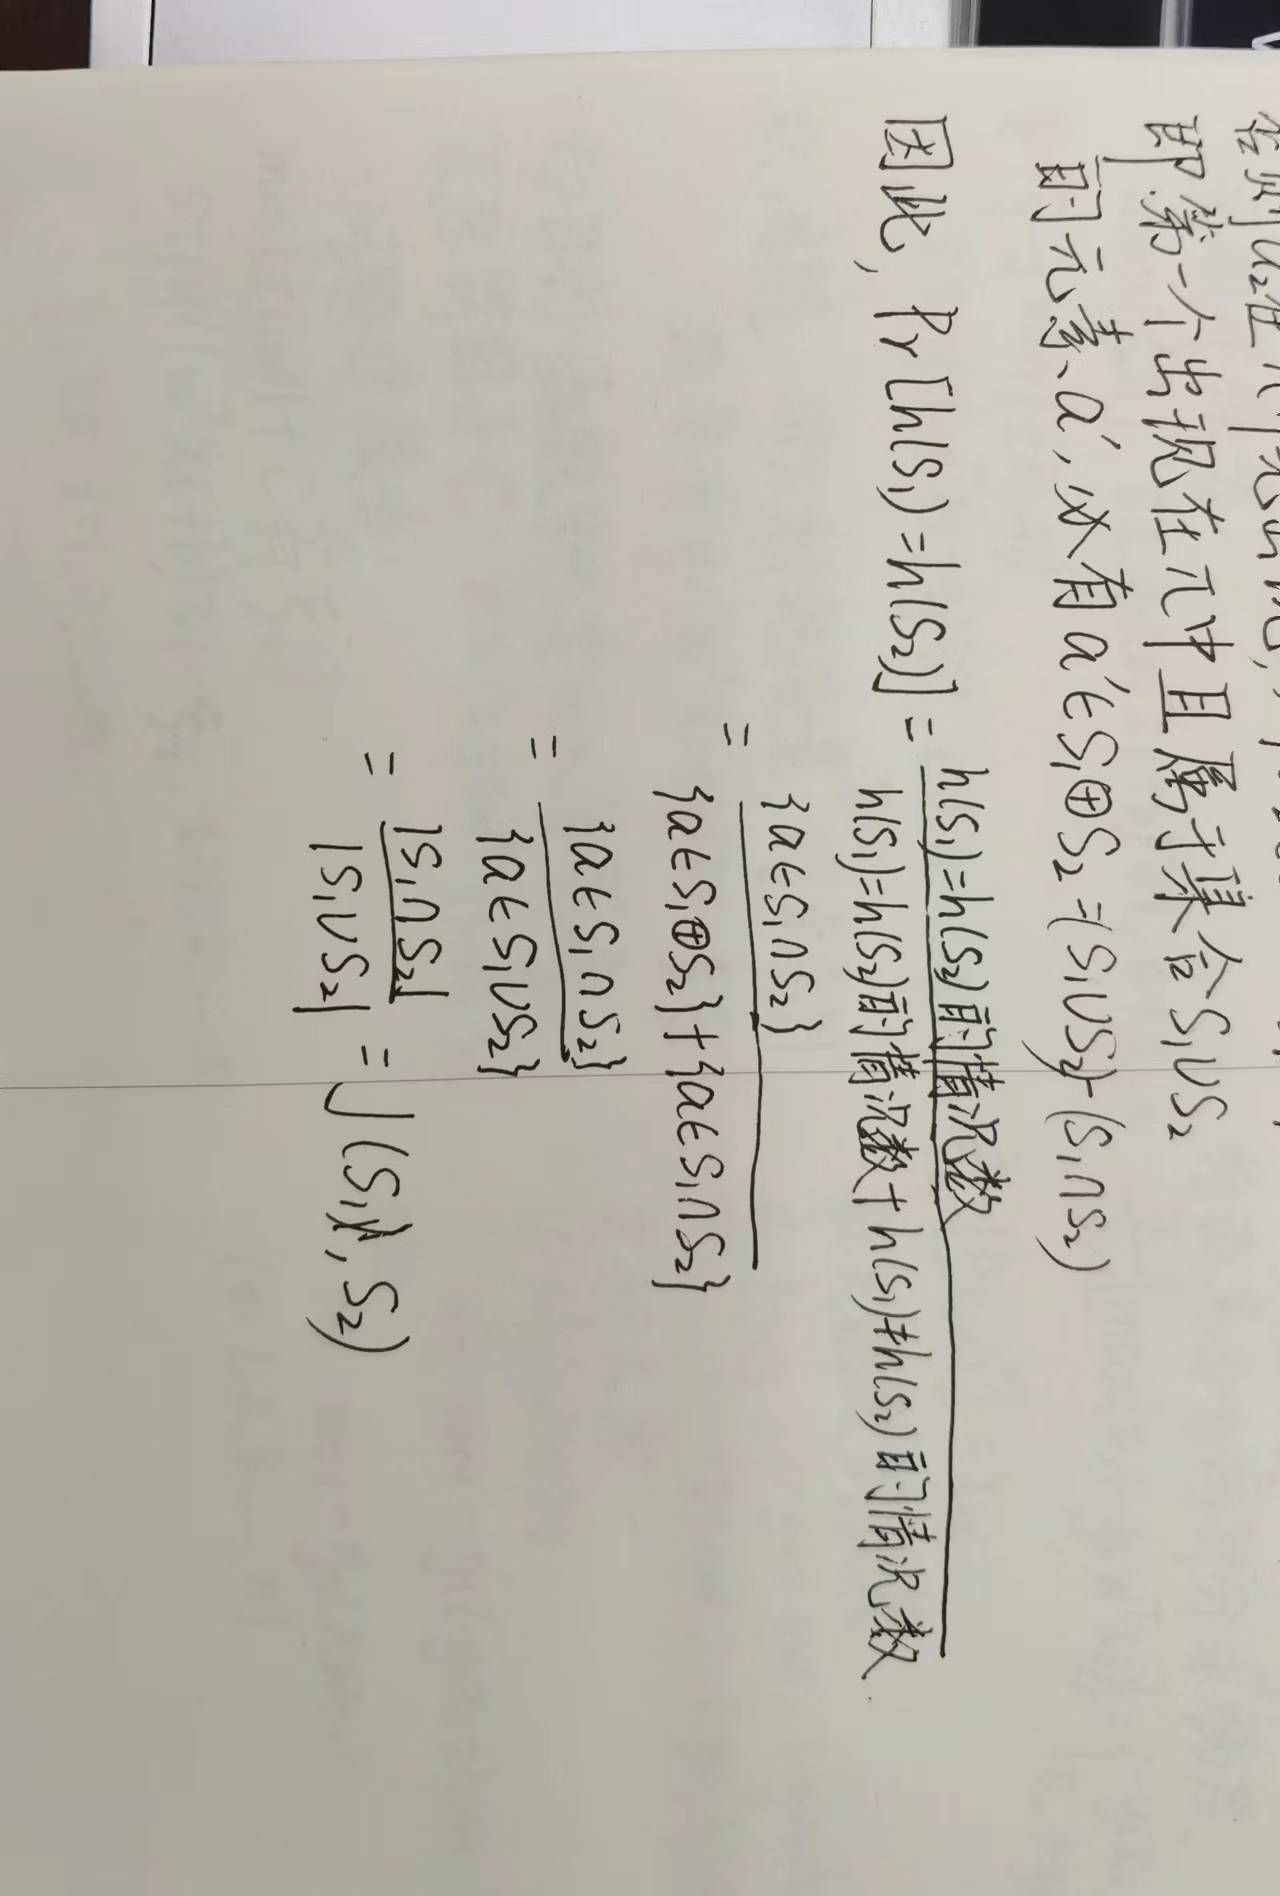 否则u₂在π中
即第一个出现在π中且属于集合S₁∪S₂
的元素a′,必有a′∈S₁⊕S₂=(S₁∪S₂)-(S₁∩S₂)
因此,Pr[h(S₁)=h(S₂)]=
h(S₁)=h(S₂)的情况数
h(S₁)=h(S₂)的情况数+h(S₁)≠h(S₂)的情况数
=
{a∈S₁∩S₂}
{a∈S₁⊕S₂}+{a∈S₁∩S₂}
=
{a∈S₁∩S₂}
{a∈S₁∪S₂}
=
|S₁∩S₂|
|S₁∪S₂|
=J(S₁,S₂)